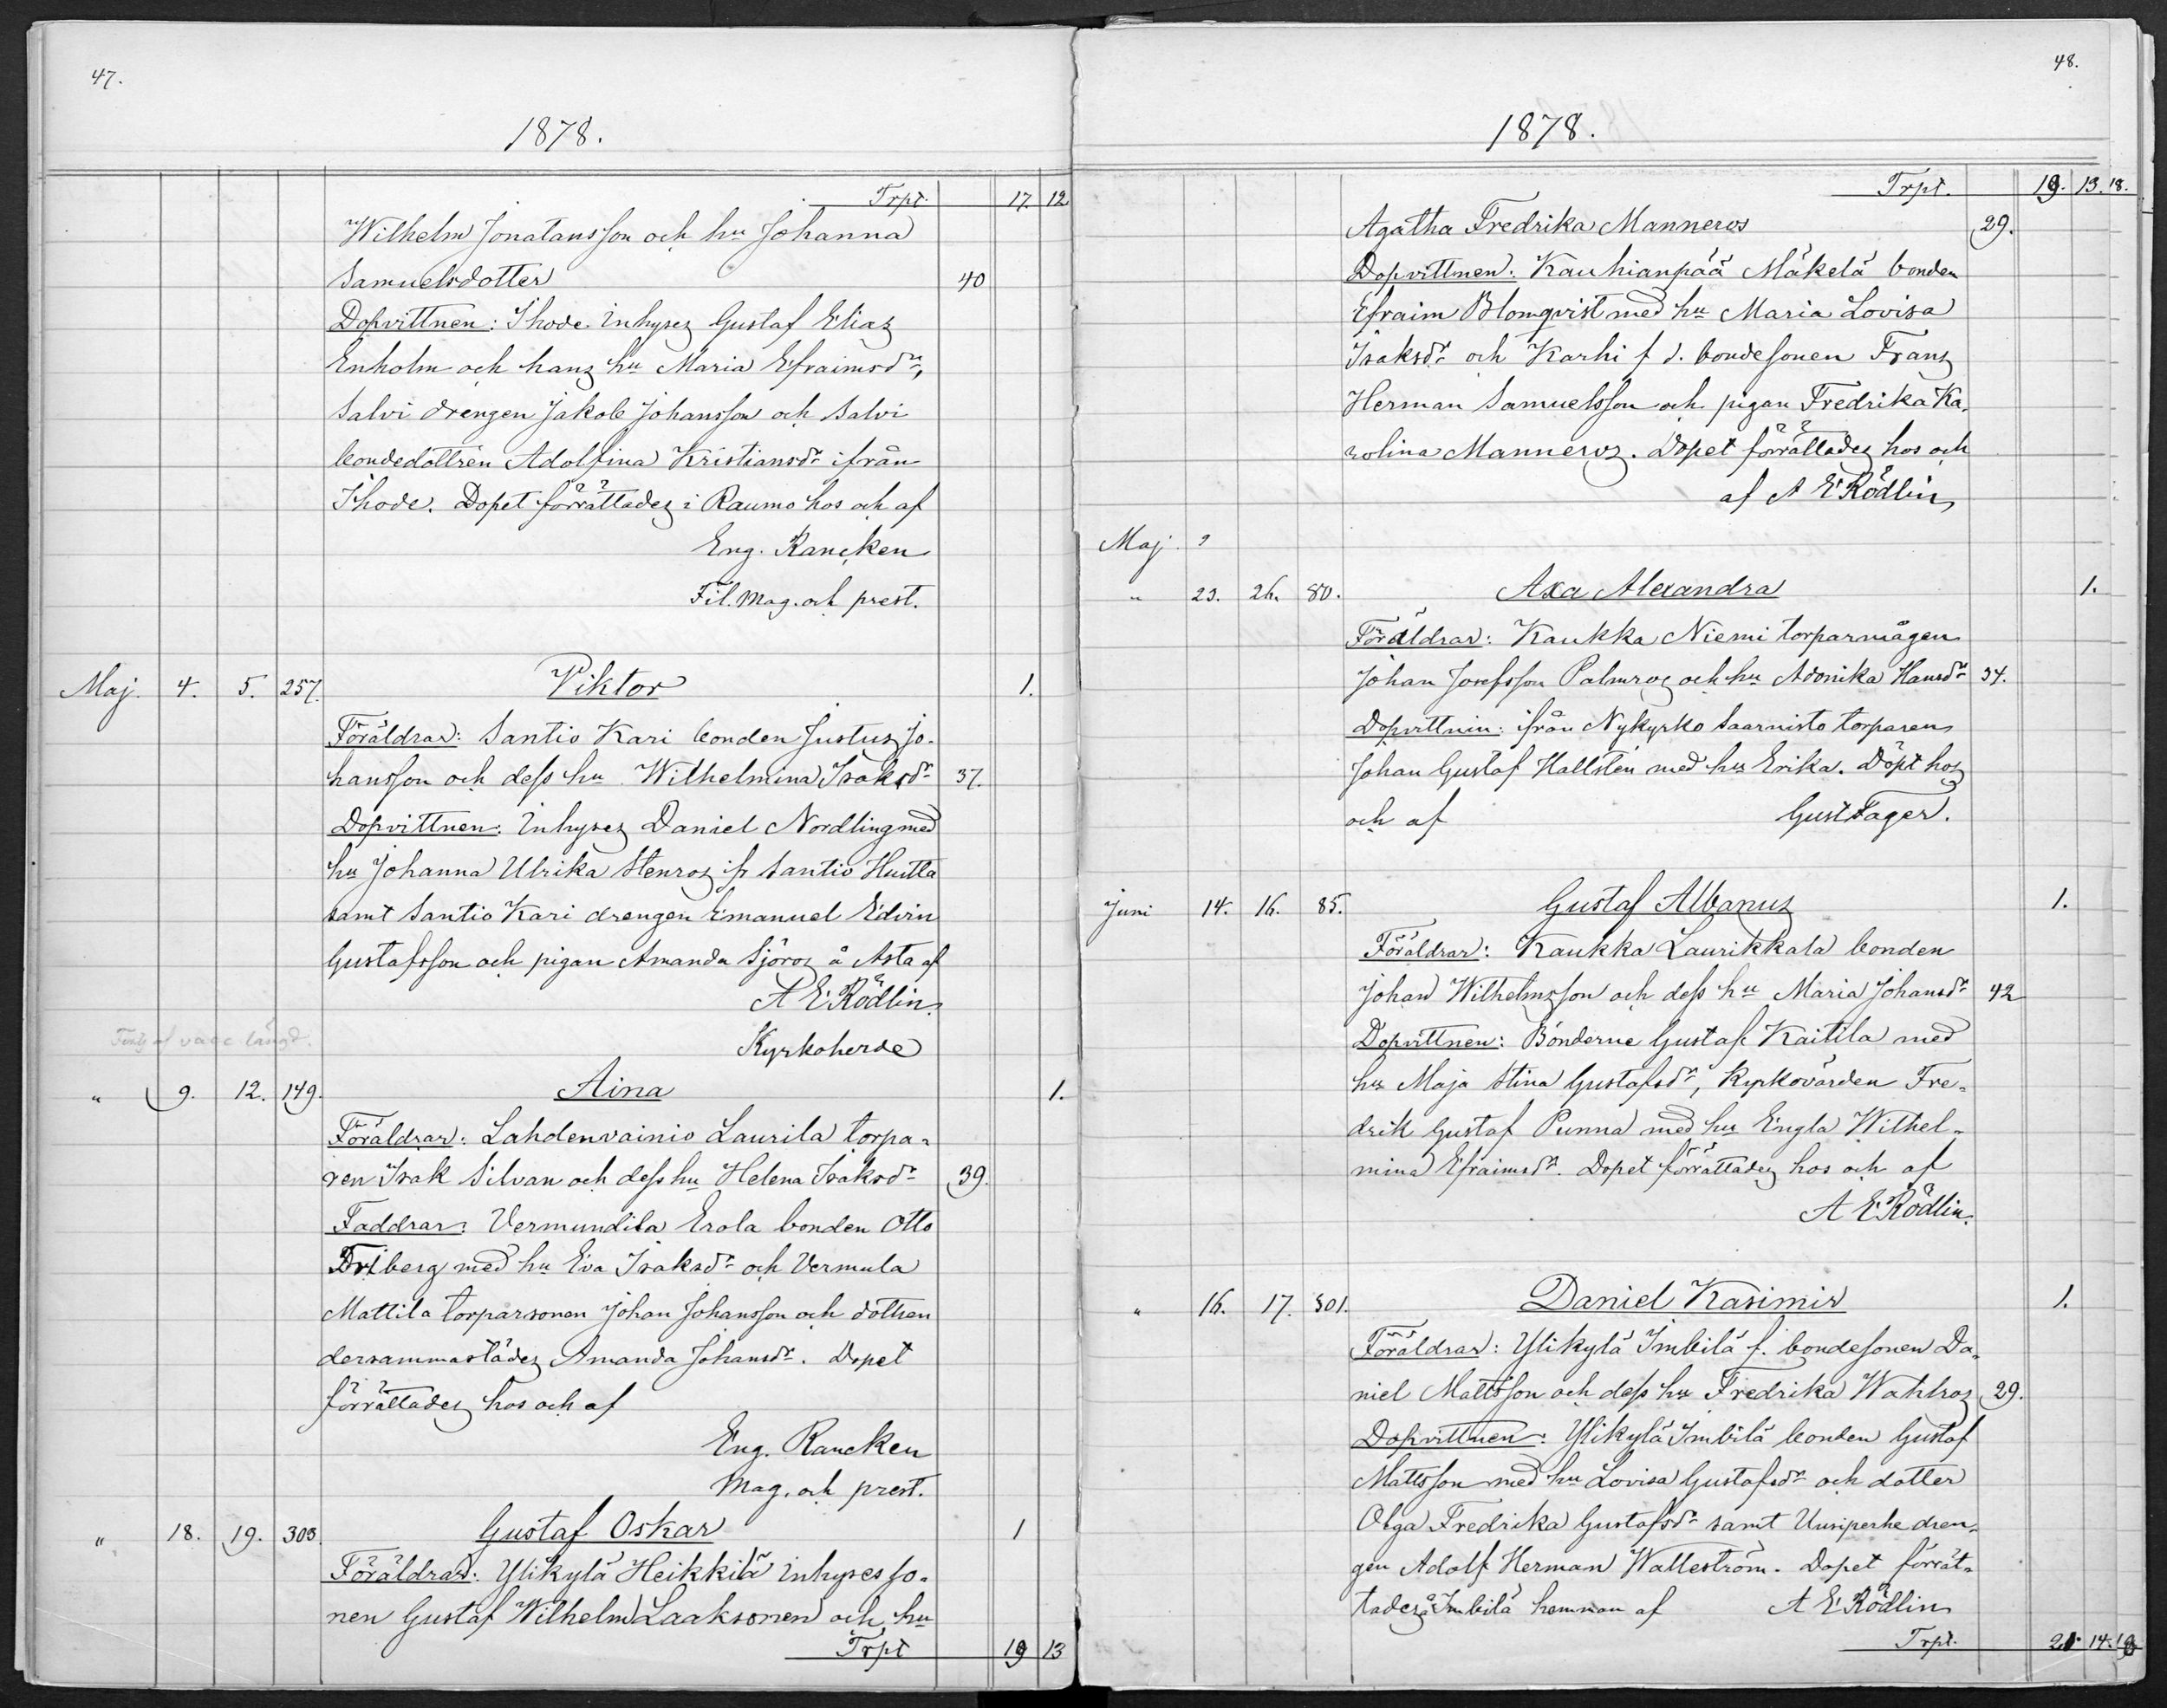 47.
1878.
Trpt. 17. 12
Wilhelm Jonatansson och hu Johanna
Samuelsdotter 40
Dopvittnen: Ihode Inhyses Gustaf Elias
Enholm och hans hu Maria Efraimsdr,
Salvi drengen Jakob Johansson och Salvi
bondedottren Adolfina Kristiansdr ifrån
Ihode. Dopet förrättades i Raumo hos och af
Eng. Rancken
Fil. Mag. och prest.
Maj. 4. 5. 257. Viktor 1.
Föräldrar: Santio Kari bonden Justus Jo-
hansson och dess hu Wilhelmina Isaksdr 37.
Dopvittnen: Inhyses Daniel Nordling med
hu Johanna Ulrika Stenros ifr Santio Huitla
samt Santio Kari drengen Emanuel Edvin
Gustafsson och pigan Amanda Sjöros å Asta af
A E Rödlin.
Kyrkoherde
" 9. 12. 149. Aina 1.
Föräldrar: Lahdenvainio Laurila torpa-
ren Isak Silvan och dess hu Helena Isaksdr 39.
Faddrar: Vermundila Erola bonden Otto
Friberg med hu Eva Isaksdr och Vermula
Mattila torparsonen Johan Johansson och dottren
dersammastädes Amanda Johansdr. Dopet
förrättades hos och af
Eng. Rancken
Mag. och prest.
" 18. 19. 303. Gustaf Oskar 1
Föräldrar: Ylikylä Heikkilä inhyses so-
nen Gustaf Wilhelm Laaksonen och hu
Trpt 19 13
48.
1878.
Trpt. 19. 13. 18.
Agatha Fredrika Manneros 29.
Dopvittnen: Kauhianpää Mäkelä bonden
Efraim Blomqvist med hu Maria Lovisa
Isaksdr och Karhi f d. bondesonen Frans
Herman Samuelsson och pigan Fredrika Ka-
rolina Manneros. Dopet förrättades hos och
af A E Rödlin
Maj
" 23. 26. 80. Axa Alexandra 1.
Föräldrar: Kaukka Niemi torparmågen
Johan Josefsson Palmros och hu Adonika Hansdr 34.
Dopvittnin: ifrån Nykyrko Saarnisto torparen
Johan Gustaf Hallstén med hu Erika. Döpt hos
och af Gust Fager.
Juni 14. 16. 85. Gustaf Albanus 1.
Föräldrar: Kaukka Laurikkala bonden
Johan Wilhelmsson och dess hu Maria Johansdr 42
Dopvittnen: Bönderne Gustaf Kaitila med
hu Maja Stina Gustafsdr, Kyrkovärden Fre-
drik Gustaf Punna med hu Engla Wilhel-
mina Efraimsdr. Dopet förrättades hos och af
A E Rödlin.
" 16. 17. 301. Daniel Kasimir 1.
Föräldrar: Ylikylä Imbilä f. bondesonen Da-
niel Mattsson och dess hu Fredrika Wahlros 29.
Dopvittnen: Ylikylä Imbilä bonden Gustaf
Mattsson med hu Lovisa Gustafsdr och dotter
Olga Fredrika Gustafsdr samt Uusiperhe dren-
gen Adolf Herman Walleström. Dopet förrät-
tades å Imbilä hemman af A E Rödlin
Trpt. 21. 14. 18